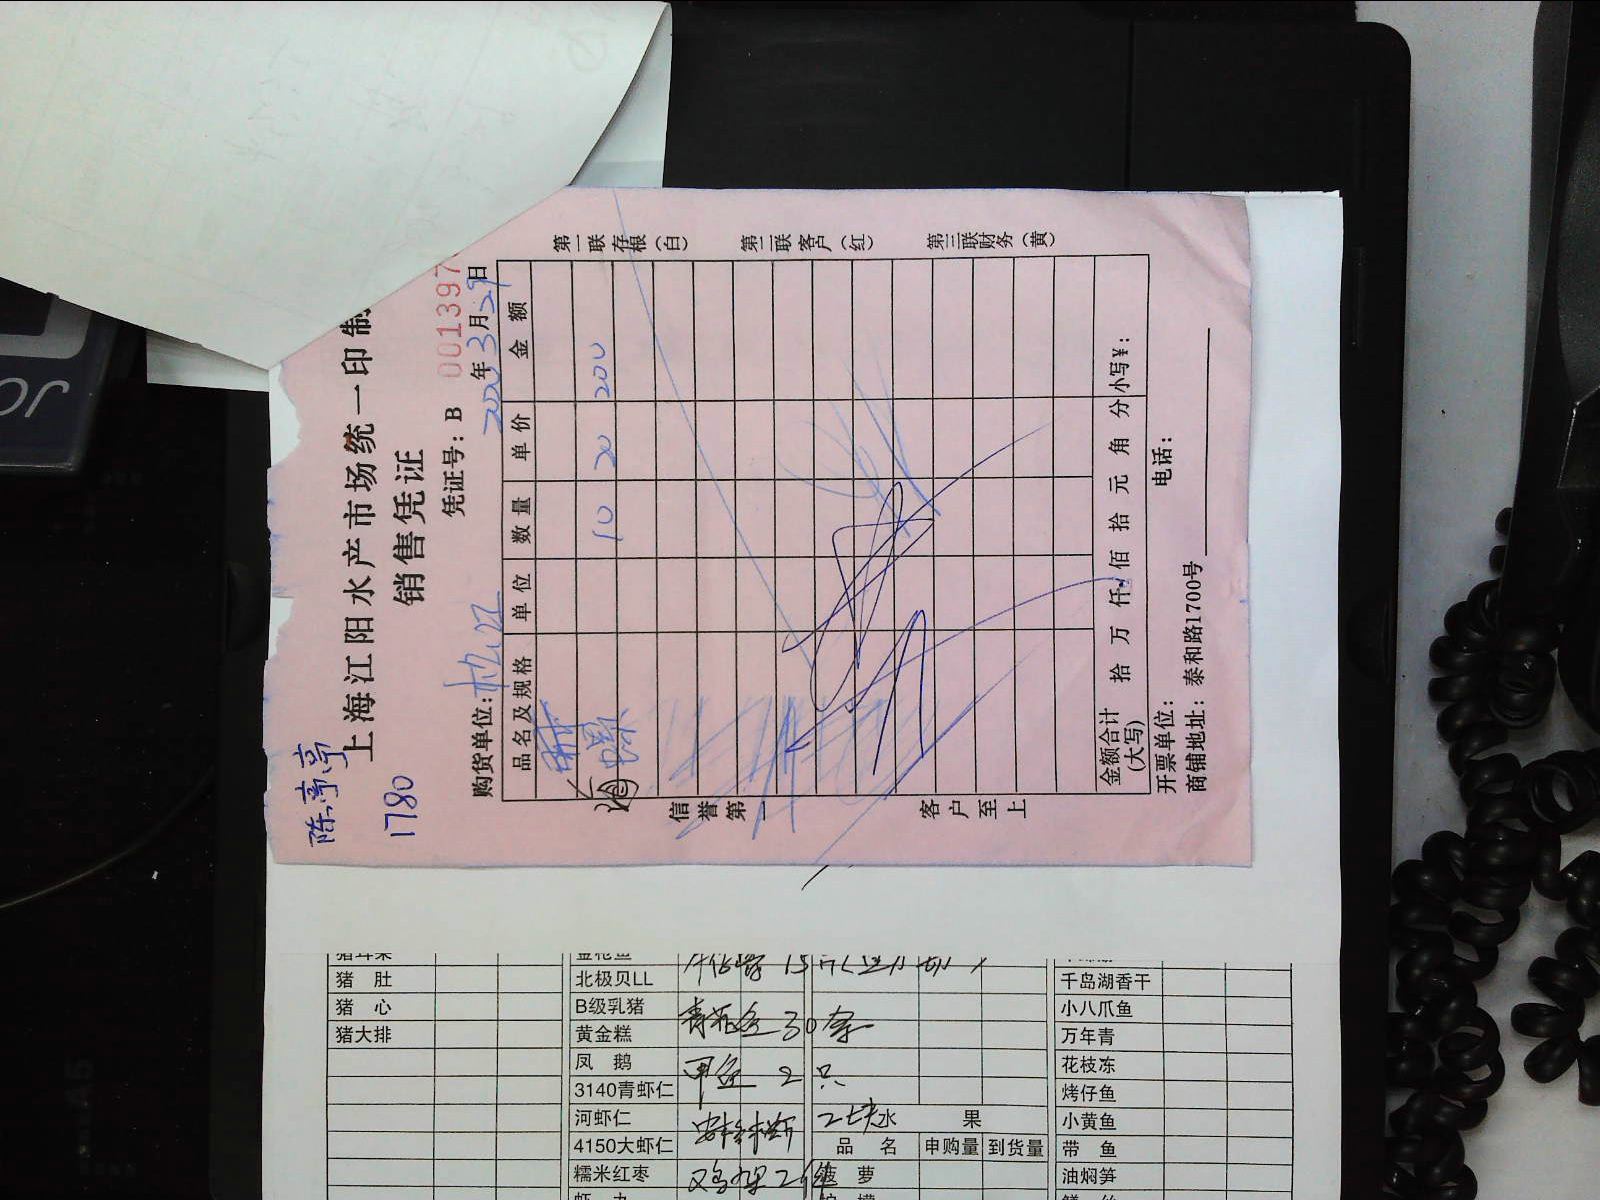 陈亭亭
1780
上海江阳水产市场统一印制
销售凭证
凭证号：B 001397
购货单位：
年3月29日
品名及规格 单位 数量 单价 金额
海螺 10 20 200
金额合计（大写） 拾 万 仟 佰 拾 元 角 分 小写¥：
开票单位： 电话：
商铺地址：泰和路1700号
信誉第一
客户至上
第一联存根（白）
第二联客户（红）
第三联财务（黄）
猪肚 北极贝LL 千岛湖香干
猪心 B级乳猪 小八爪鱼
猪大排 黄金糕 30条 万年青
凤鹅 甲鱼 2只 花枝冻
3140青虾仁 烤仔鱼
河虾仁 水果 小黄鱼
4150大虾仁 品名 申购量 到货量 带鱼
糯米红枣 菠萝 油焖笋
JO